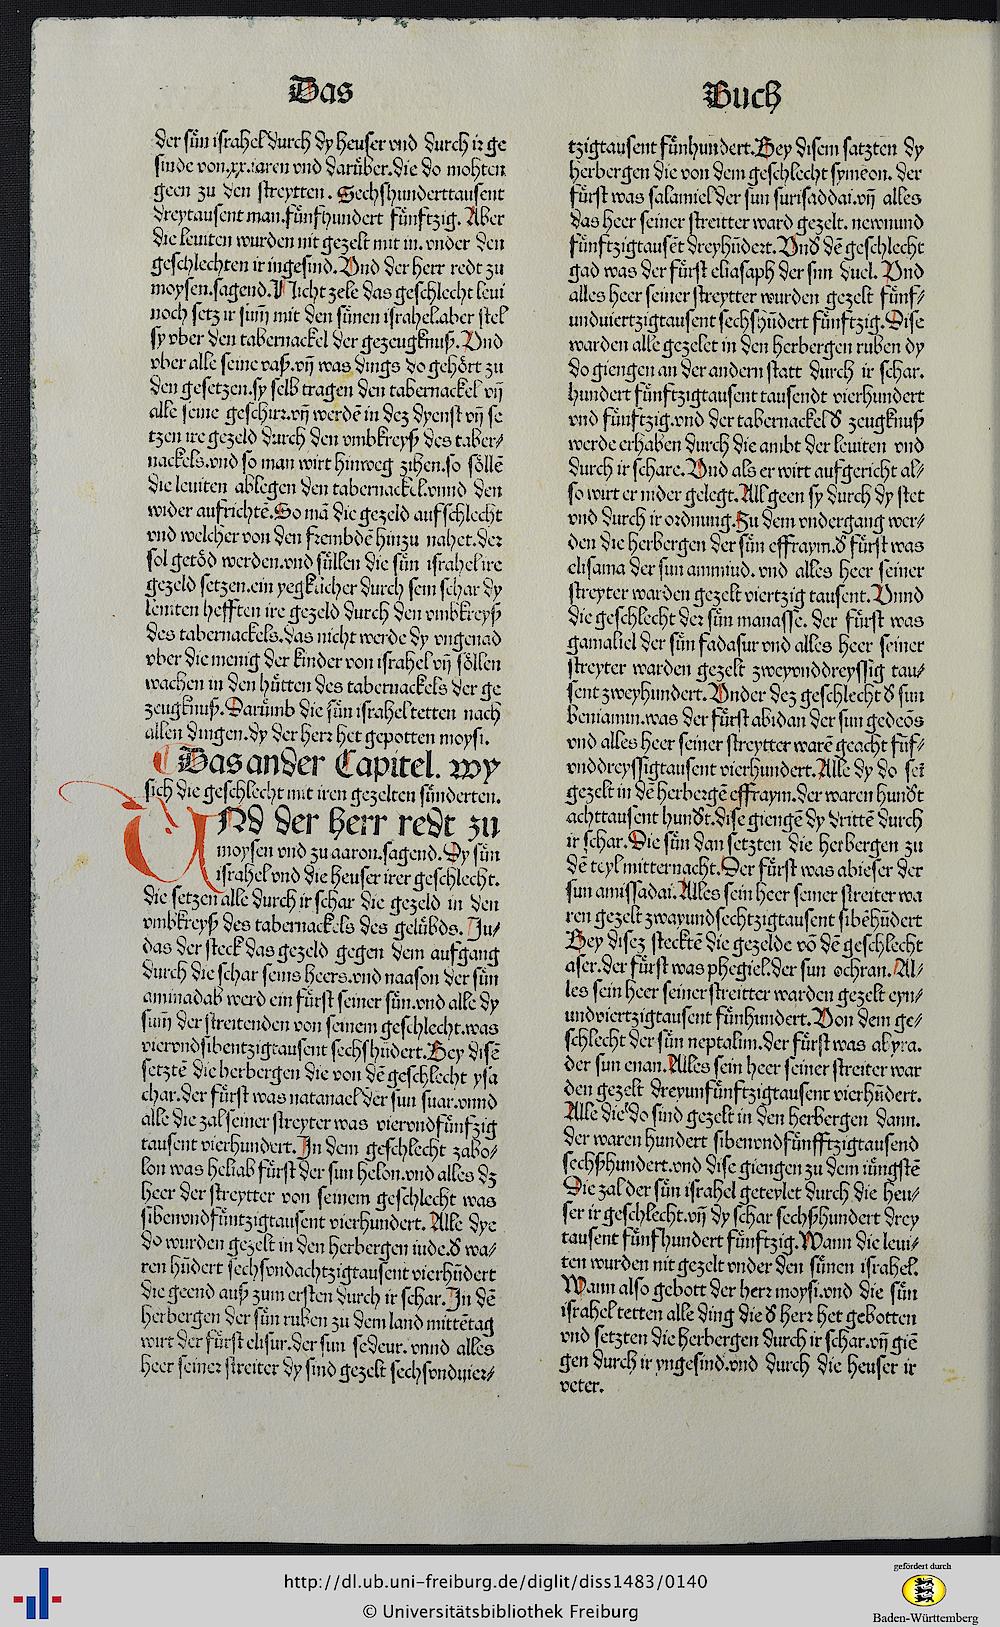 Das
Buch
der sün israhel durch dy heuser vnd durch ir ge
sinde von.xx.iaren vnd darüber.die do mohten
geen zu den streytten. Sechshunderttausent
dreytausent man.fünfhundert fünftzig. Aber
die leuiten wurden nit gezelt mit in. vnder den
geschlechten ir ingesind. Vnd der herr redt zu
moysen.sagend. Nicht zele das geschlecht leui
noch setz ir sum̄ mit den sünen israhel.aber stel
sy vber den tabernackel der gezeugknuß. Vnd
vber alle seine vaß.vn̄ was dings do gehört zu
den gesetzen.sy selb tragen den tabernackel vn̄
alle seine geschirr.vn̄ werdē in dez dyenst vn̄ se
tzen ire gezeld durch den vmbkreyß des taber⸗
nackels.vnd so man wirt hinweg zihen.so söllē
die leuiten ablegen den tabernackel.vnnd den
wider aufrichtē. So mā die gezeld aufschlecht
vnd welcher von den frembdē hinzu nahet.der
sol getöd werden.vnd süllen die sün israhel ire
gezeld setzen.ein yegklicher durch sein schar dy
leuiten hefften ire gezeld durch den vmbkreyß
des tabernackels.das nicht werde dy vngenad
vber die menig der kinder von israhel vn̄ söllen
wachen in den hütten des tabernackels der ge
zeugknuß. Darümb die sün israhel tetten nach
allen dingen.dy der herr het gepotten moysi.
Das ander Capitel. wy
sich die geschlecht mit iren gezelten sünderten.
UNd der herr redt zu
moysen vnd zu aaron.sagend. Dy sün
israhel vnd die heuser irer geschlecht.
die setzen alle durch ir schar die gezeld in den
vmbkreyß des tabernackels des gelübds. Ju⸗
das der steck das gezeld gegen dem aufgang
durch die schar seins heers.vnd naason der sün
aminadab werd ein fürst seiner sün.vnd alle dy
sum̄ der streitenden von seinem geschlecht.was
viervndsibentzigtausent sechshūdert. Bey disē
setztē die herbergen die von dē geschlecht ysa
char.der fürst was natanael der sun suar.vnnd
alle die zal seiner streyter was viervndfünfzig
tausent vierhundert. Jn dem geschlecht zabo⸗
lon was heliab fürst der sun helon.vnd alles dz
heer der streytter von seinem geschlecht was
sibenvndfüntzigtausent vierhundert. Alle dye
do wurden gezelt in den herbergen iude.d̕ wa⸗
ren hūdert sechsvndachtzigtausent vierhūdert
die geend auß zum ersten durch ir schar. Jn dē
herbergen der sün ruben zu dem land mittētag
wirt der fürst elisur.der sun sedeur. vnnd alles
heer seiner streiter dy sind gezelt sechsvnduier⸗
tzigtausent fünhundert. Bey disem satzten dy
herbergen die von dem geschlecht symeon. der
fürst was salamiel der sun surisaddai.vn̄ alles
das heer seiner streitter ward gezelt. newnund
fünftzigtausēt dreyhūdert. Vnd̕ dē geschlecht
gad was der fürst eliasaph der sun duel. Vnd
alles heer seiner streytter wurden gezelt fünf⸗
unduiertzigtausent sechshūdert fünftzig. Dise
warden alle gezelet in den herbergen ruben dy
do giengen an der andern statt durch ir schar.
hundert fünftzigtausent tausendt vierhundert
vnd fünftzig.vnd der tabernackel d̕ zeugknuß
werde erhaben durch die ambt der leuiten vnd
durch ir schare. Vnd als er wirt aufgericht al⸗
so wirt er nider gelegt. All geen sy durch dy stet
vnd durch ir ordnung. Zu dem vndergang wer⸗
den die herbergen der sün effraym.d̕ fürst was
elisama der sun ammiud. vnd alles heer seiner
streyter warden gezelt viertzig tausent. Vnnd
die geschlecht der sün manasse. der fürst was
gamaliel der sün fadasur vnd alles heer seiner
streyter warden gezelt zweyvnddreyssig tau⸗
sent zweyhundert. Vnder dez geschlecht d̕ sun
beniamin.was der fürst abidan der sun gedeōs
vnd alles heer seiner streytter warē geacht fūf⸗
vnddreyssigtausent vierhundert. Alle dy do sei
gezelt in dē herbergē effraym.der waren hund̕t
achttausent hund̕t.dise giengē dy drittē durch
ir schar. Die sün dan setzten die herbergen zu
dē teyl mitternacht. Der fürst was abieser der
sun amissadai. Alles sein heer seiner streiter wa
ren gezelt zwayundsechtzigtausent sibēhūdert
Bey disez stecktē die gezelde vō dē geschlecht
aser.der fürst was phegiel.der sun ochran. Al⸗
les sein heer seiner streitter warden gezelt eyn⸗
undviertzigtausent fünhundert. Von dem ge⸗
schlecht der sün neptalim.der fürst was ahyra.
der sun enan. Alles sein heer seiner streiter war
den gezelt dreyunfünftzigtausent vierhūdert.
Alle die do sind gezelt in den herbergen dann.
der waren hundert sibenvndfünfftzigtausend
sechßhundert.vnd dise giengen zu dem iüngstē
Die zal der sün israhel geteylet durch die heu⸗
ser ir geschlecht.vn̄ dy schar sechßhundert drey
tausent fünfhundert fünftzig. Wann die leui⸗
ten wurden nit gezelt vnder den sünen israhel.
Wann also gebott der herr moysi.vnd die sün
israhel tetten alle ding die d̕ herr het gebotten
vnd setzten die herbergen durch ir schar.vn̄ giē
gen durch ir yngesind.vnd durch die heuser ir
veter.
http://dl.ub.uni-freiburg.de/diglit/diss1483/0140
© Universitätsbibliothek Freiburg
gefördert durch
Baden-Württemberg